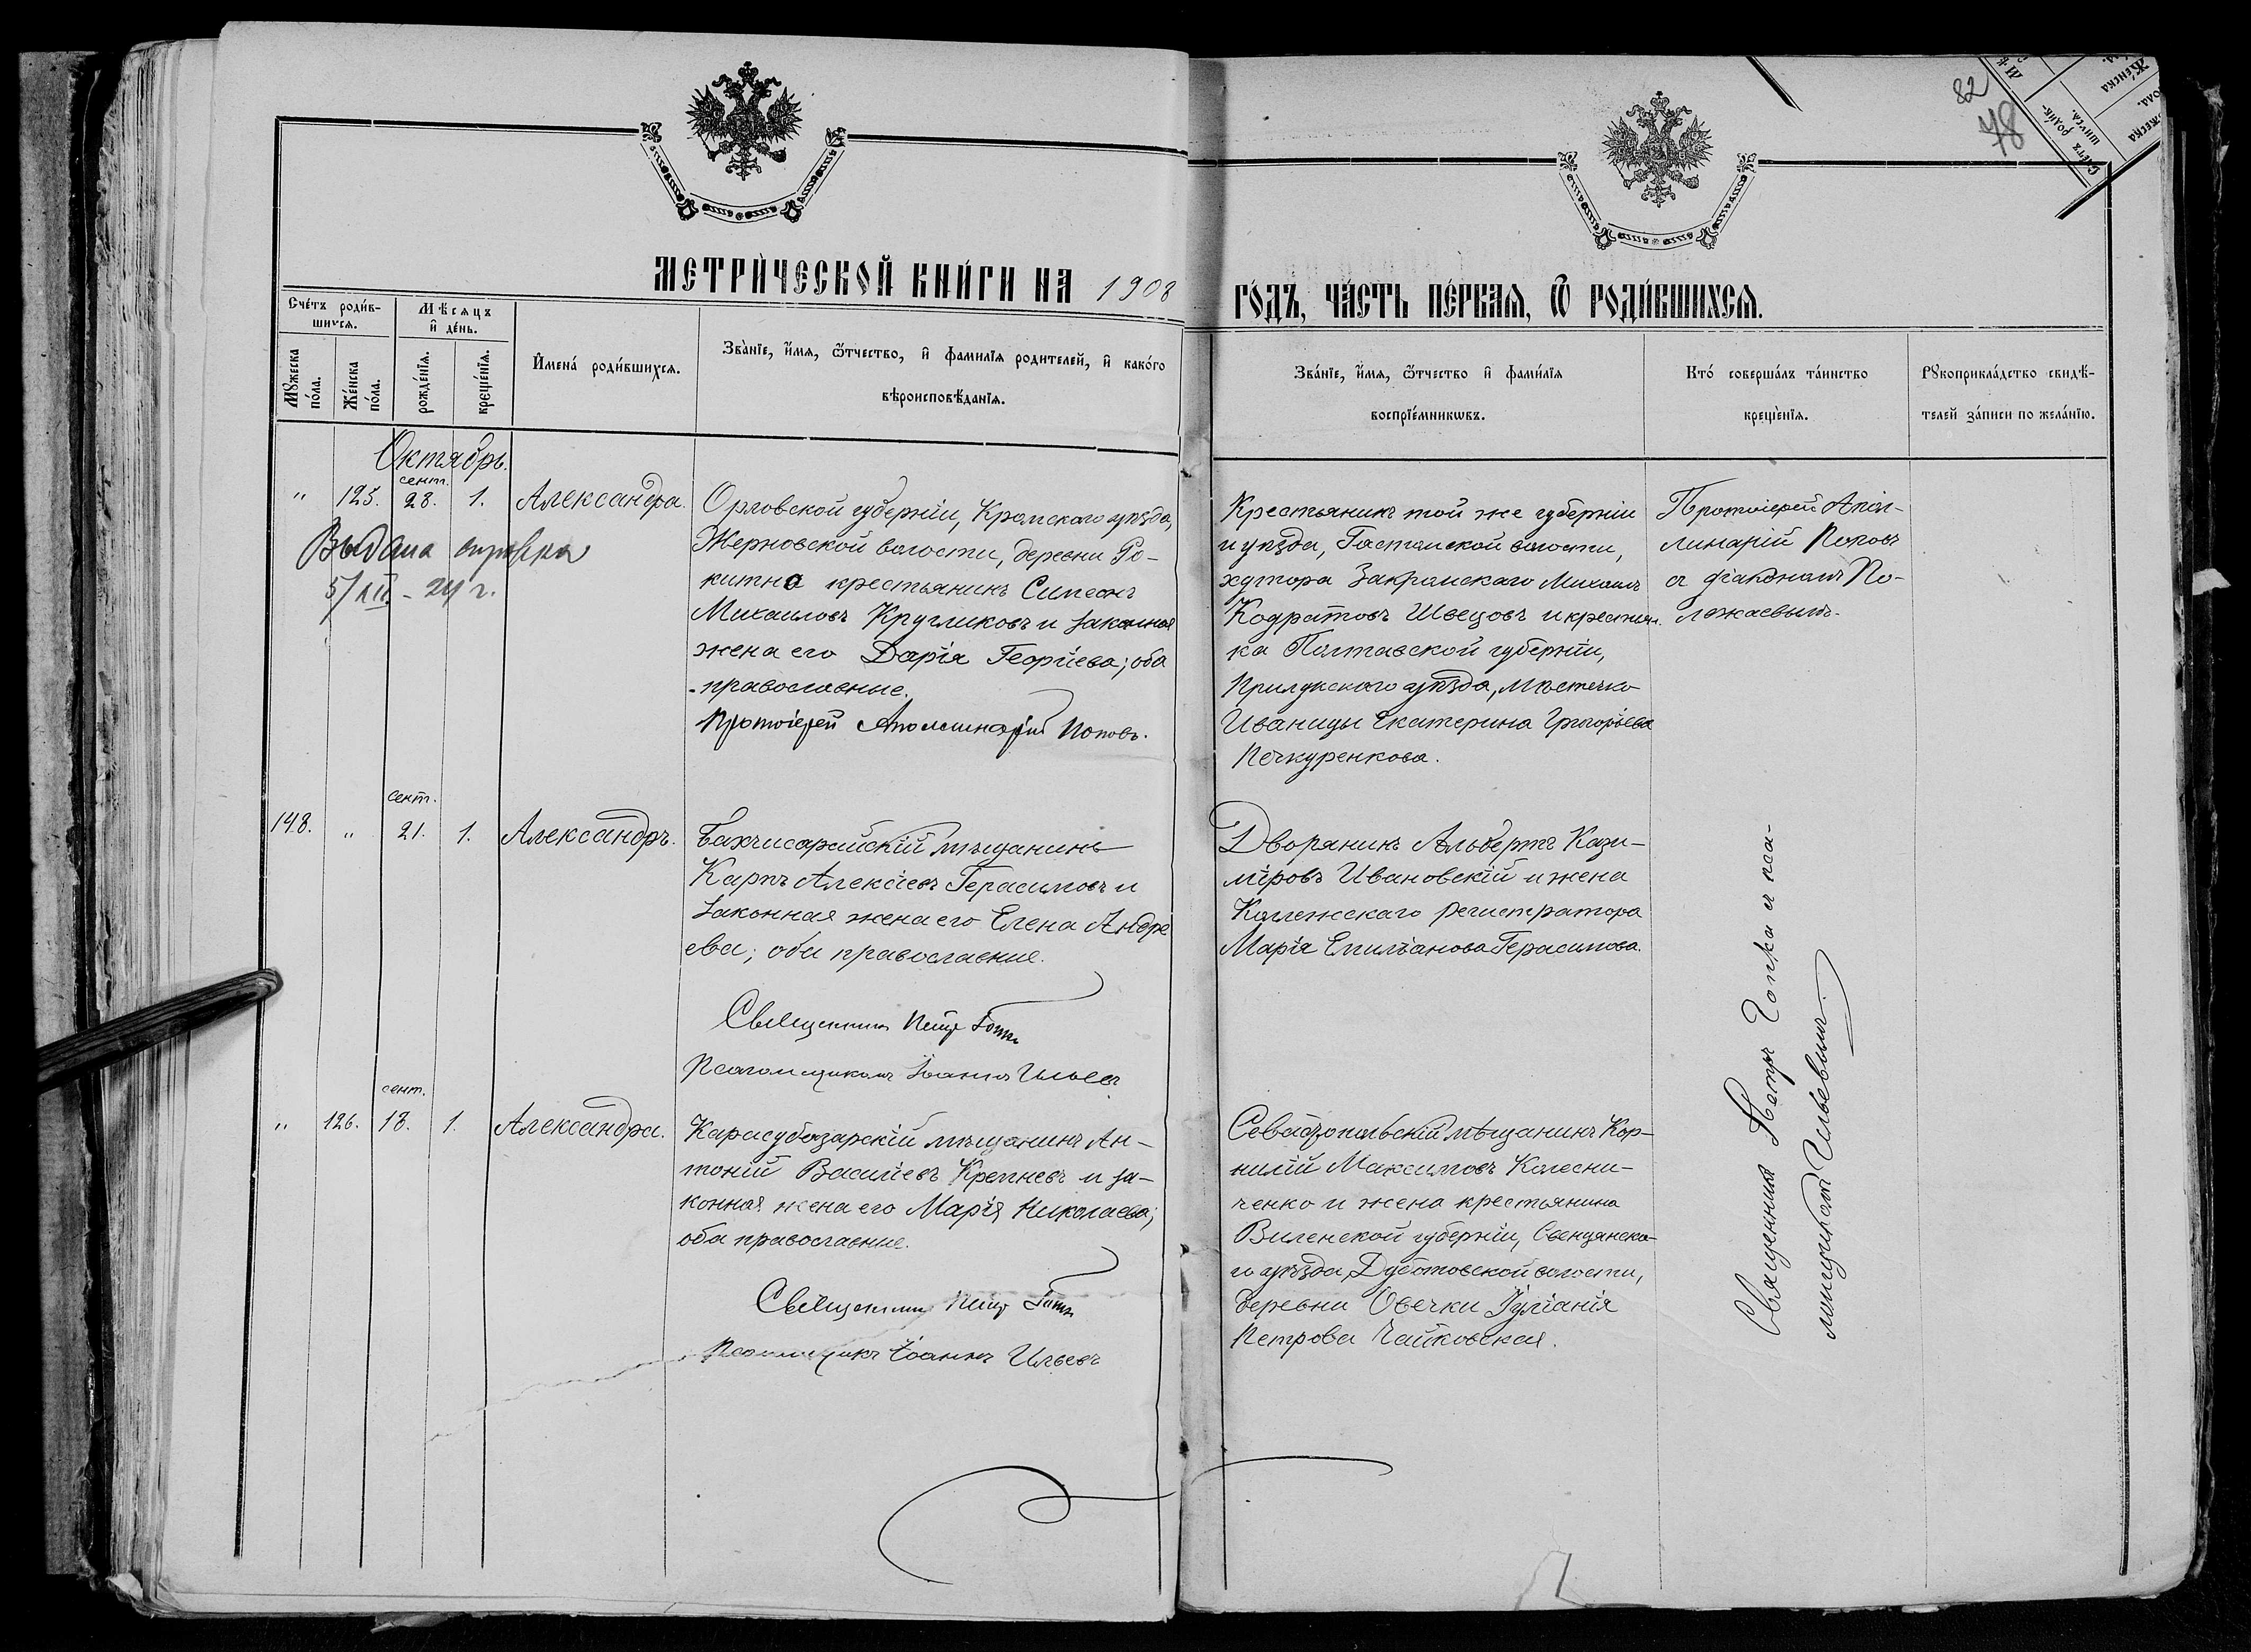 82
78
МЕТРИЧЕСКОЙ КНИГИ НА 1908
ГОДЪ, ЧАСТЬ ПЕРВАЯ, Ѿ РОДИВШИХСЯ.
Счетъ родив-
шихся.
Мѣсяцъ
и день.
Мꙋжеска
пола.
Женска
пола.
рожденїя.
крещенїя.
Имена родившихся.
Званїе, имя, ѿтчество, и фамилїя родителей, и какого
вѣроисповѣданїя.
Званїе, имя, ѿтчество и фамилїя
воспрїемникѡвъ.
Кто совершалъ таинство
крещенїя.
Рꙋкоприкладство свидѣ-
телей записи по желанїю.
Октябрь.
сент.
" 125. 28. 1. Александра.
Выдана справка
5/XII - 24 г.
Орловской губерніи, Кромскаго уѣзда,
Жерновской волости, деревни Ро-
китно крестьянинъ Симеонъ
Михаиловъ Кругликовъ и законная
жена его Дарія Георгіева; оба
православные.
Протоіерей Аполлинарій Поповъ.
Крестьянинъ той же губерніи
и уѣзда, Гостомской волости,
хутора Закромскаго Михаилъ
Кодратовъ Швецовъ и крестьян.
ка Полтавской губерніи,
Прилукскаго уѣзда, мѣстечко
Иваницы Екатерина Григорьева
Печкуренкова.
Протоіерей Апол-
линарій Поповъ
съ діакономъ По-
лежаевымъ.
сент.
148. " 21. 1. Александръ.
Бахчисарайскій мѣщанинъ
Карпъ Алексіевъ Герасимовъ и
законная жена его Елена Андре
ева; оба православные.
Священникъ Петръ
Псаломщикъ Іоаннъ Ильевъ
Дворянинъ Альбертъ Кази-
міровъ Ивановскій и жена
Коллежскаго регистратора
Марія Емиліанова Герасимова.
сент.
" 126. 18. 1. Александра.
Карасубазарскій мѣщанинъ Ан-
тоній Василіевъ Кремневъ и за-
конная жена его Марія Николаева;
оба православные.
Священникъ Петръ
Псаломщикъ Іоаннъ Ильевъ
Севастопольскій мѣщанинъ Кор-
нилій Максимовъ Колесни-
ченко и жена крестьянина
Виленской губерніи, Свенцянска-
го уѣзда, Дуботовской волости,
деревни Овечки Іуліанія
Петрова Чайковская.
Священникъ Петръ и пса-
ломщикъ Ильевымъ.